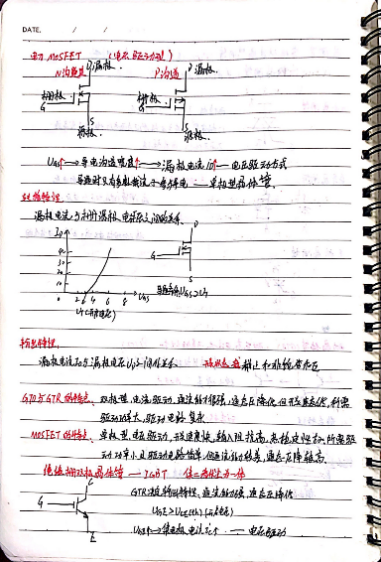 DATE. / /
电力MOSFET (电压驱动型)
N沟道 D漏极. P沟道 D漏极.
栅极. G 栅极. G
S 源极. S 源极.
UGS↑→导电沟道宽度↑→漏极电流ID↑—电压驱动方式
导通时只有多数载流子参与导电—单极型晶体管.
转移特性
漏极电流与栅源极电压之间的关系.
ID
40
30
20
10
0 2 4 6 8 UGS
UT(开启电压)
D
G
S
输出特性.
漏极电流ID与漏极电压UDS间的关系.
GTO与GTR的特点. 双极型,电流驱动,通流能力很强,通态压降低,但开关速度低,所需
驱动功率大,驱动电路复杂
MOSFET的特点. 单极型,电压驱动,开关速度快,输入阻抗高,热稳定性好,所需驱
动功率小且驱动电路简单,但通流能力较差,通态压降较高.
绝缘栅双极晶体管→IGBT
C
G
E
UGE>UGE(th)(开启电压)
UGE↑→集电极电流IC↑ — 电压驱动